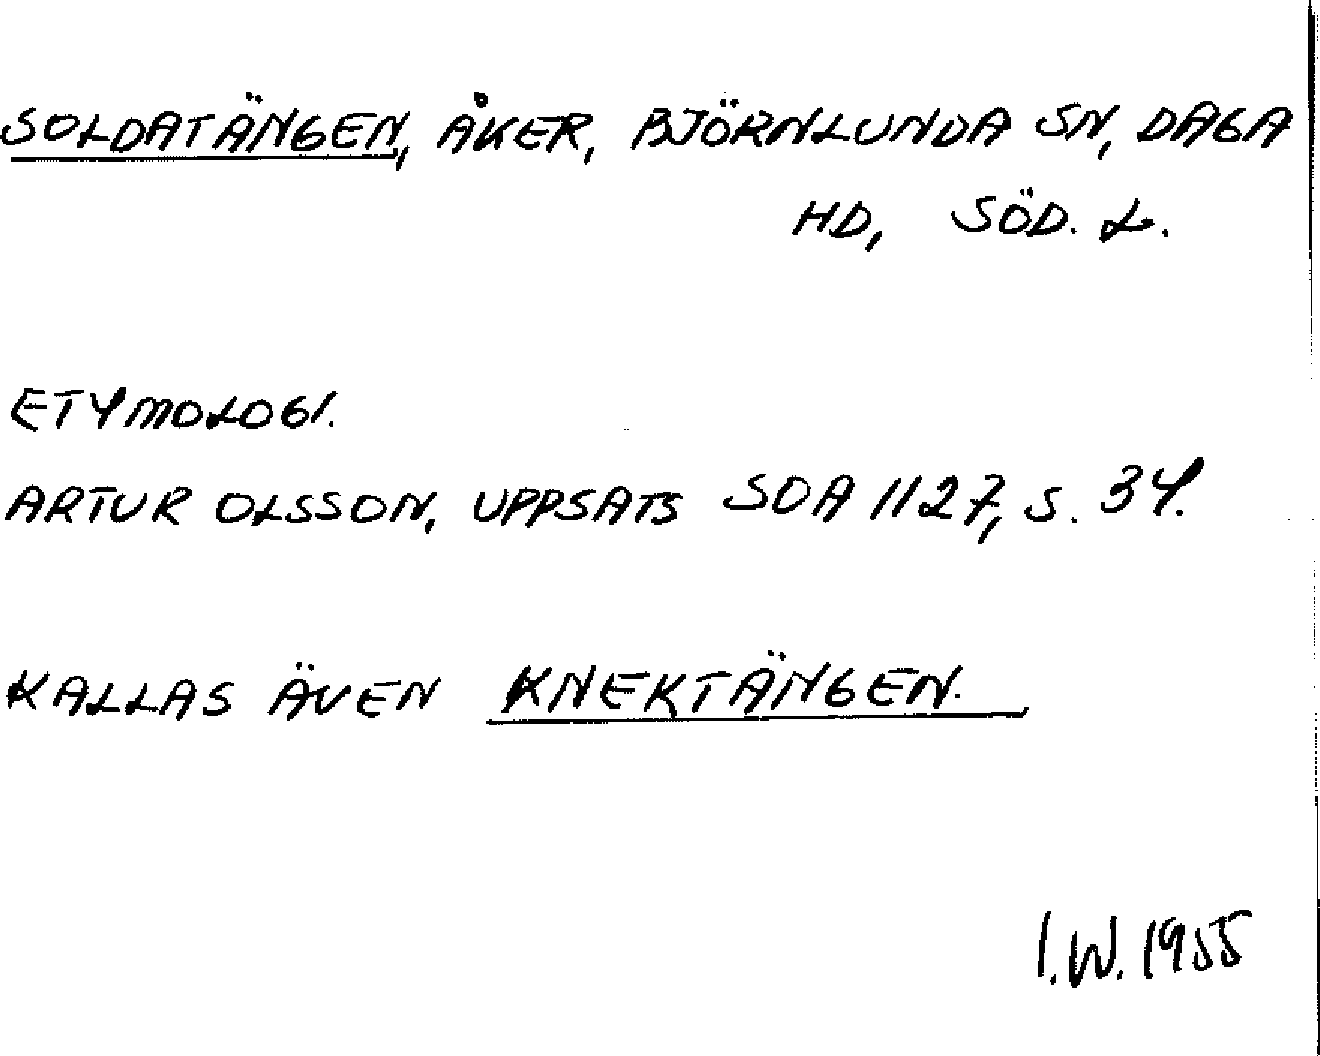 SOLDATÄNGEN, ÅKER, BJÖRNLUNDA SN, DAGA
HD, SÖD. L.
ETYMOLOGI.
ARTUR OLSSON, UPPSATS SOA 1127, S. 34.
KALLAS ÄVEN KNEKTÄNGEN.
I.W. 1955